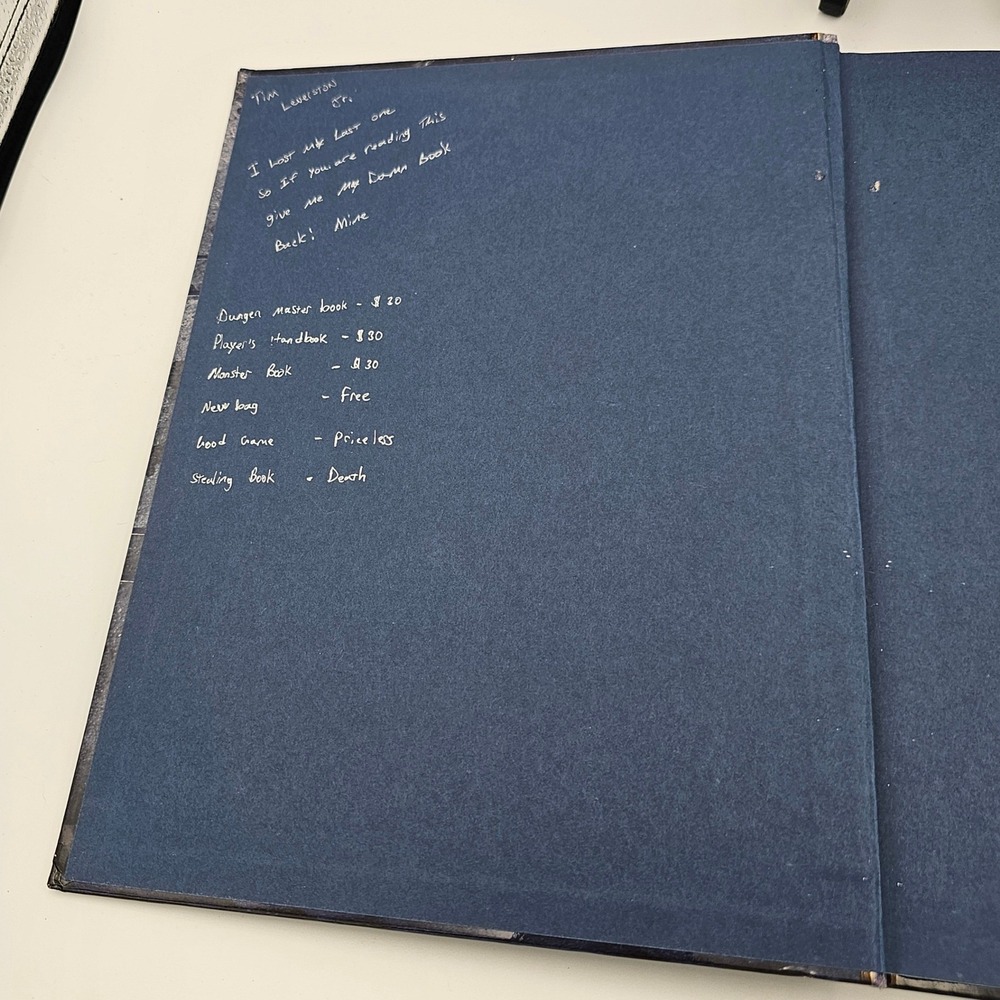 Tim
Leverston
Jr.
I Lost my Last one
So If you are reading This
give me my Damn Book
Back! Mine
Dungen Master book - $20
Player's Handbook - $30
Monster Book - $30
New bag - Free
Good Game - Priceless
Stealing Book - Death